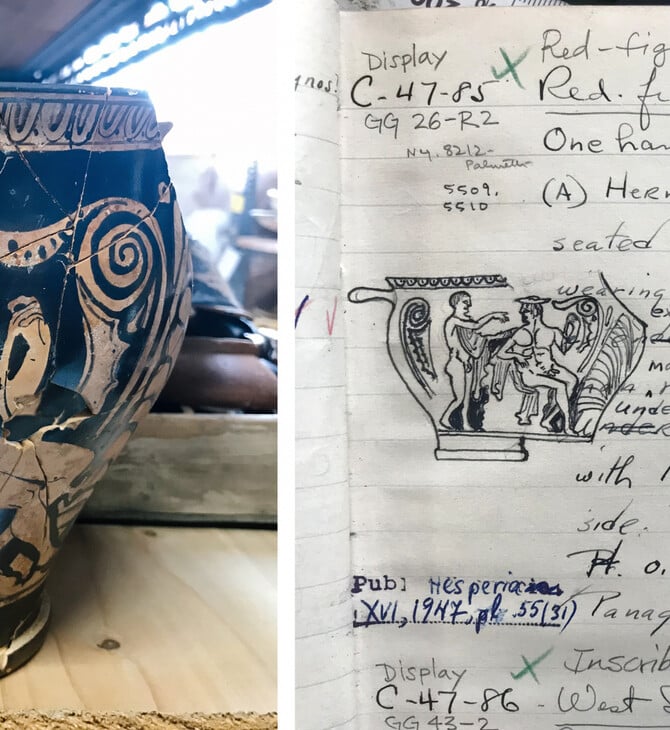 Display
C-47-85
GG 26-R2
Ny. 8212-
Palmette
5509.
5510
Red-fig
Red. fi
One han
(A) Herm
seated
wearing
ma
unde
with
side.
Pt. o.
Pub] Hesperia
XVI, 1947, pl. 55(31)
Panag
Display
C-47-86
GG 43-2
Inscrib
West S